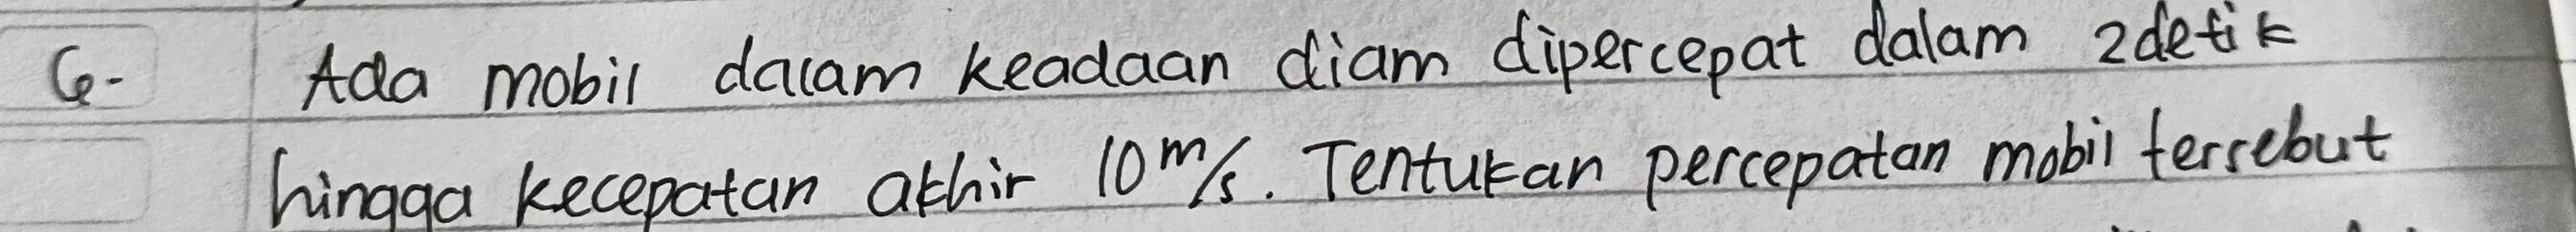 6. Ada mobil dalam keadaan diam dipercepat dalam 2 detik
hingga kecepatan akhir 10 m/s. Tentukan percepatan mobil tersebut